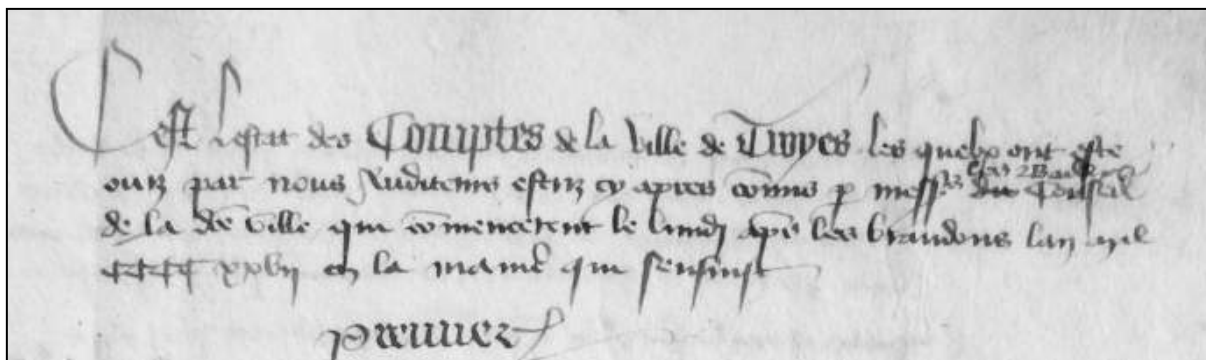 Cest lestat des Comptes de la Ville de Troyes les quelx ont este
ouiz par nous Auditeurs cy apres par mess du Conseil
de la dce ville qui comencerent le lundi apres les brandons lan mil
CCCC xxvij en la maniere qui sensuist
premier